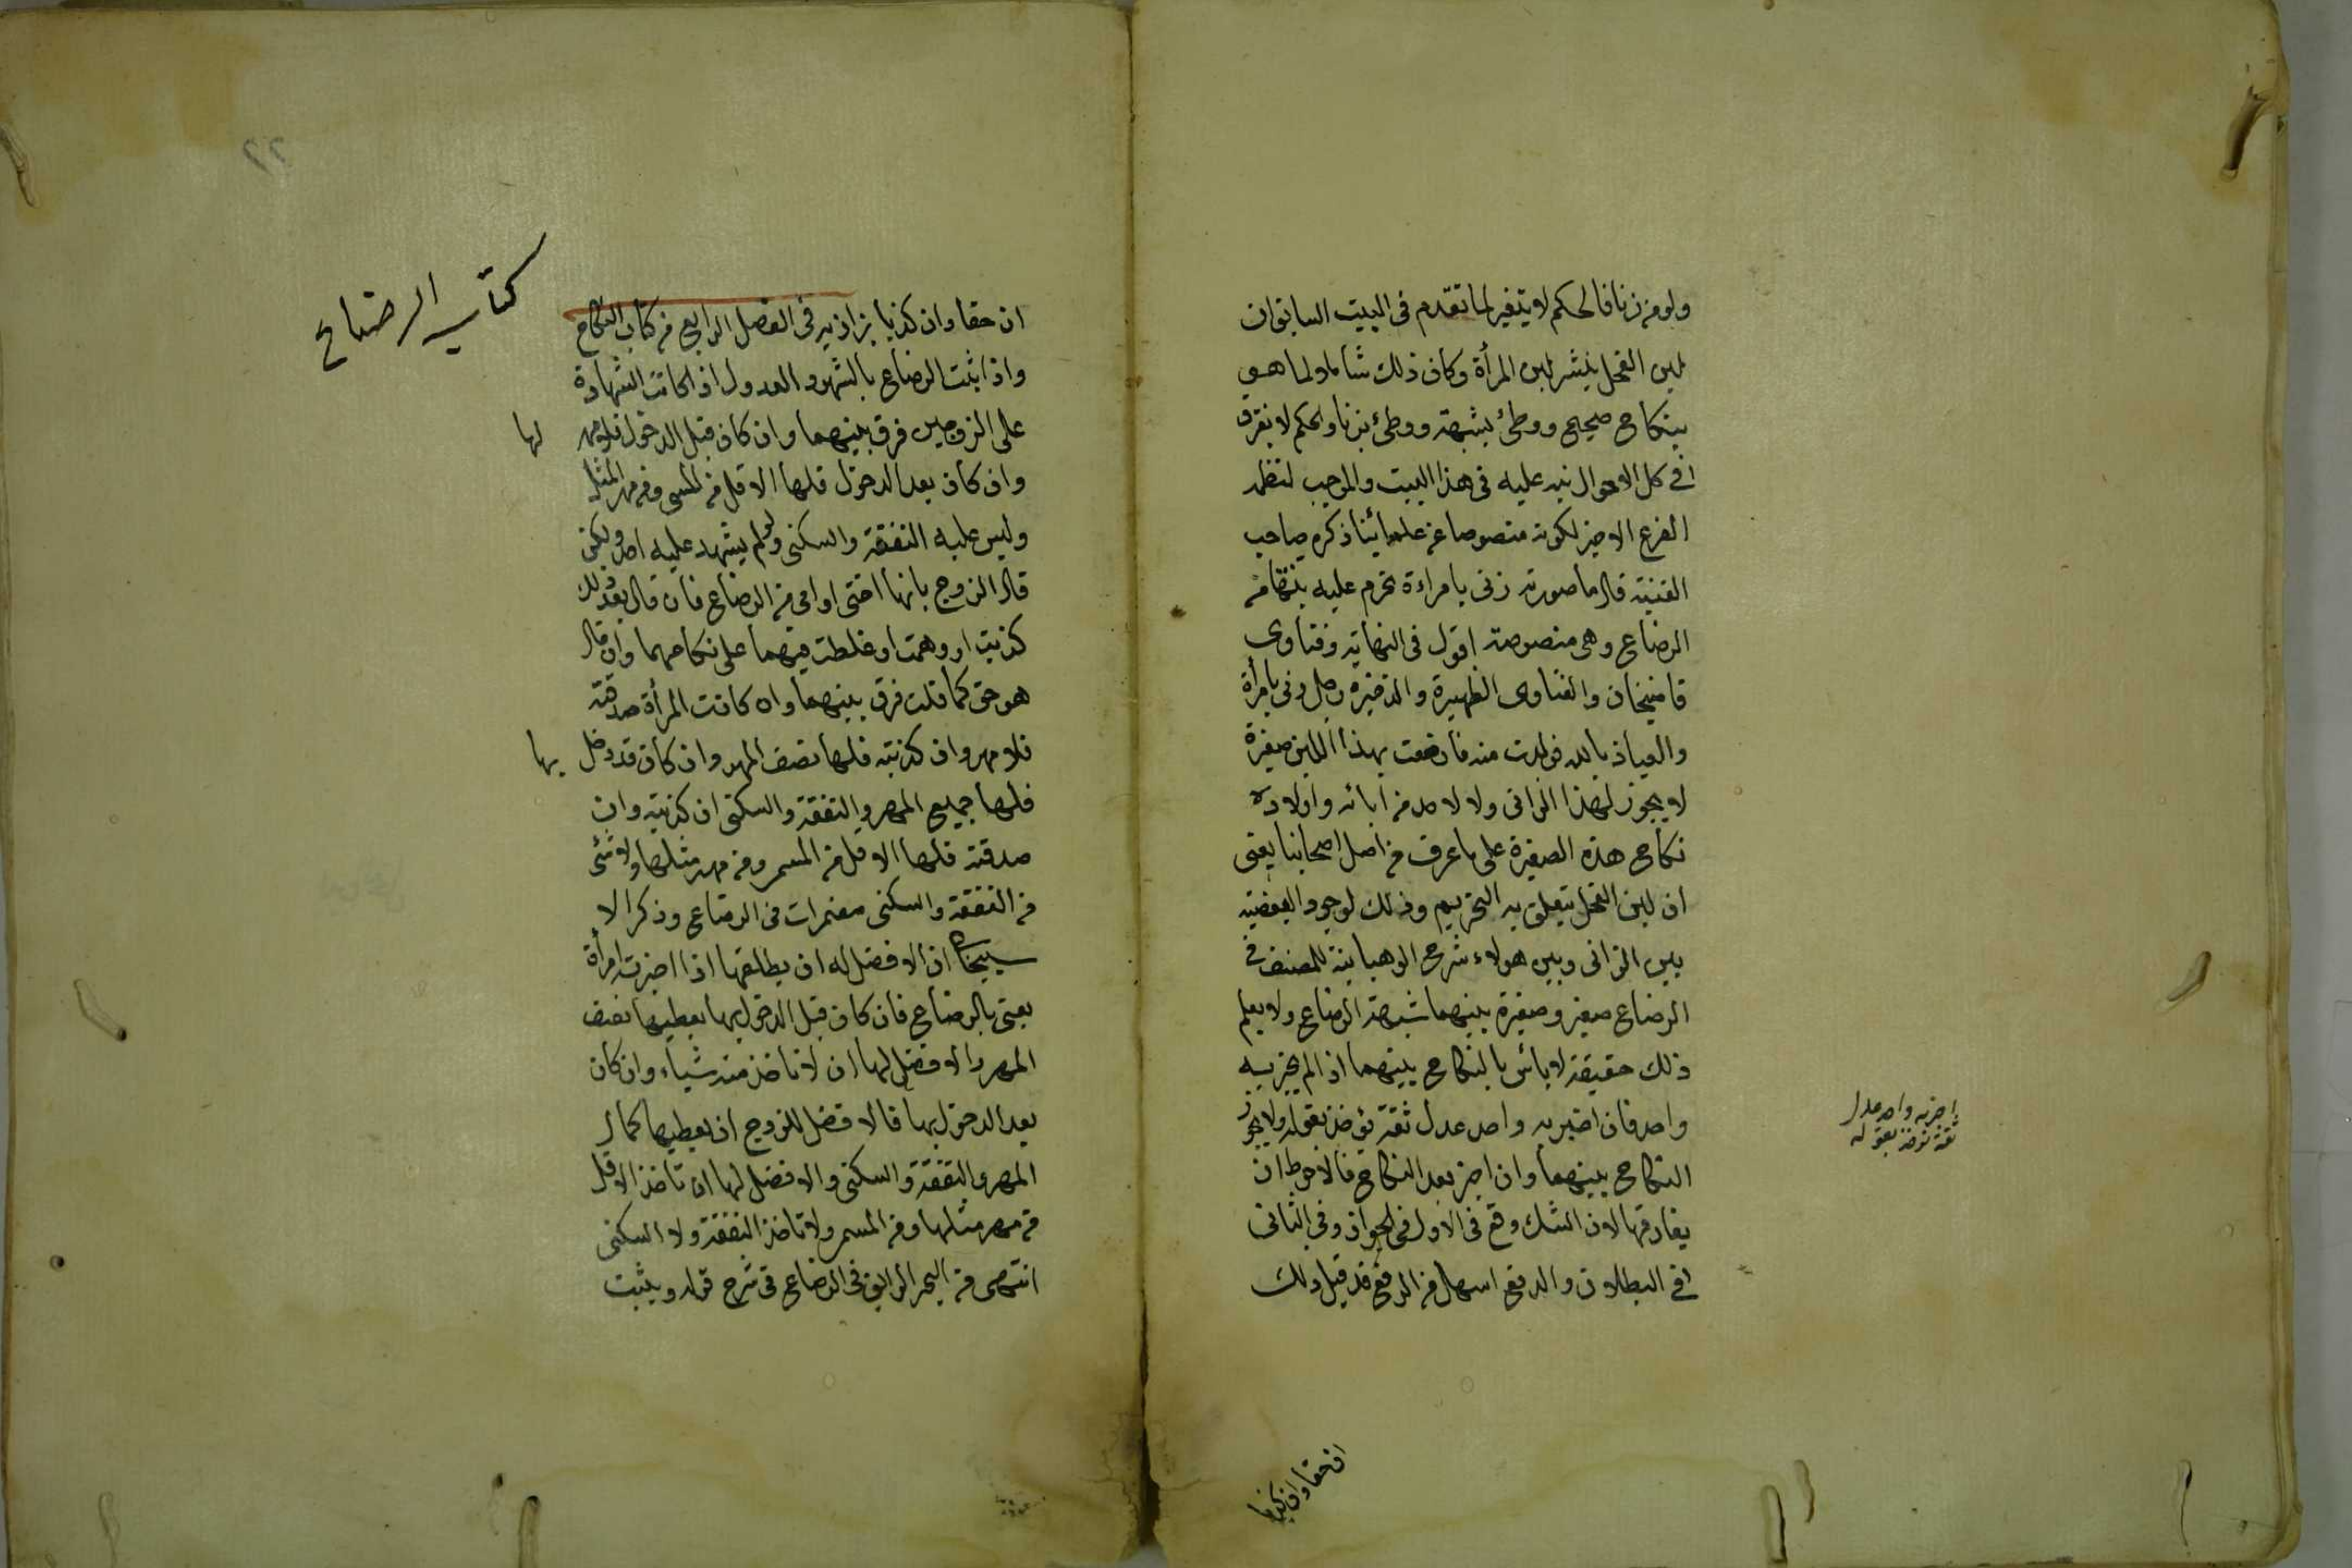 ولو من زنا فالحكم لا يتغير لما تقدم فى البيت السابق ان
لبن الفحل ينشر لبن المرأة وكان ذلك شاملا ولما هو
بنكاح صحيح ووطئ بشبهة ووطئ بزنا والحكم لا يفرق
فى كل الاحوال نبه عليه فى هذا البيت والموجب لنظمه
الفرع الاخير لكونه منصوصا عن علمائنا ذكره صاحب
القنية قال ما صورته زنى بامراءة تحرم عليه بنتها من
الرضاع وهى منصوصة اقول فى النهاية وفتاوى
قاضيخان والفتاوى الظهيرة والذخيرة رجل زنى بامرأة
والعياذ بالله فولدت منه فارضعت بهذا اللبن صغيرة
لا يجوز لهذا الزانى ولا لاحد من ابائه واولاده
نكاح هذه الصغيرة على ما عرف من اصل اصحابنا يعنى
ان لبن الفحل يتعلق به التحريم وذلك لوجود البعضية
بين الزانى وبين هولاء شرح الوهبانية للمصنف فى
الرضاع صغير وصغيرة بينهما شبهة الرضاع ولا يعلم
ذلك حقيقة لا بأس بالنكاح بينهما اذا لم يخبر به
واحد فان اخبر به واحد عدل ثقة يؤخذ بقوله ولا يجوز
النكاح بينهما وان اخبر بعد النكاح فالاحوط ان
يفارقها لان الشك وقع فى الاول فى الجواز وفى الثانى
فى البطلان والدفع اسهل من الرفع قد قيل ذلك
اخبر به واحد عدل
ثقة يؤخذ بقوله
ان حقا وان كذبا
٢٢
كتاب الرضاع
ان حقا وان كذبا بزازيه فى الفصل الرابع من كتاب النكاح
واذا ثبت الرضاع بالشهود العدول اذا كانت الشهادة
على الزوجين فرق بينهما وان كان قبل الدخول فلا مهر لها
وان كان بعد الدخول فلها الاقل من المسمى ومن مهر المثل
وليس عليه النفقة والسكنى ولو لم يشهد عليه احد ولكن
قال الزوج بانها اختى او امى من الرضاع فان قال بعد ذلك
كذبت او وهمت او غلطت فيهما على نكاحهما وان قال
هو حق كما قلت فرق بينهما وان كانت المرأة صدقته
فلا مهر وان كذبته فلها نصف المهر وان كان قد دخل بها
فلها جميع المهر والنفقة والسكنى ان كذبته وان
صدقته فلها الاقل من المسمى ومن مهر مثلها ولا شئ
من النفقة والسكنى مضمرات فى الرضاع وذكر الا
سبيجابى ان الافضل له ان يطلقها اذا اخبرت امرأة
يعنى بالرضاع فان كان قبل الدخول بها يعطيها نصف
المهر والافضل لها ان لا تاخذ منه شياء وان كان
بعد الدخول بها فالافضل للزوج ان يعطيها كمال
المهر والنفقة والسكنى والافضل لها ان تاخذ الاقل
من مهر مثلها ومن المسمى ولا تاخذ النفقة ولا السكنى
انتهى من البحر الرائق فى الرضاع فى شرح قوله ويثبت